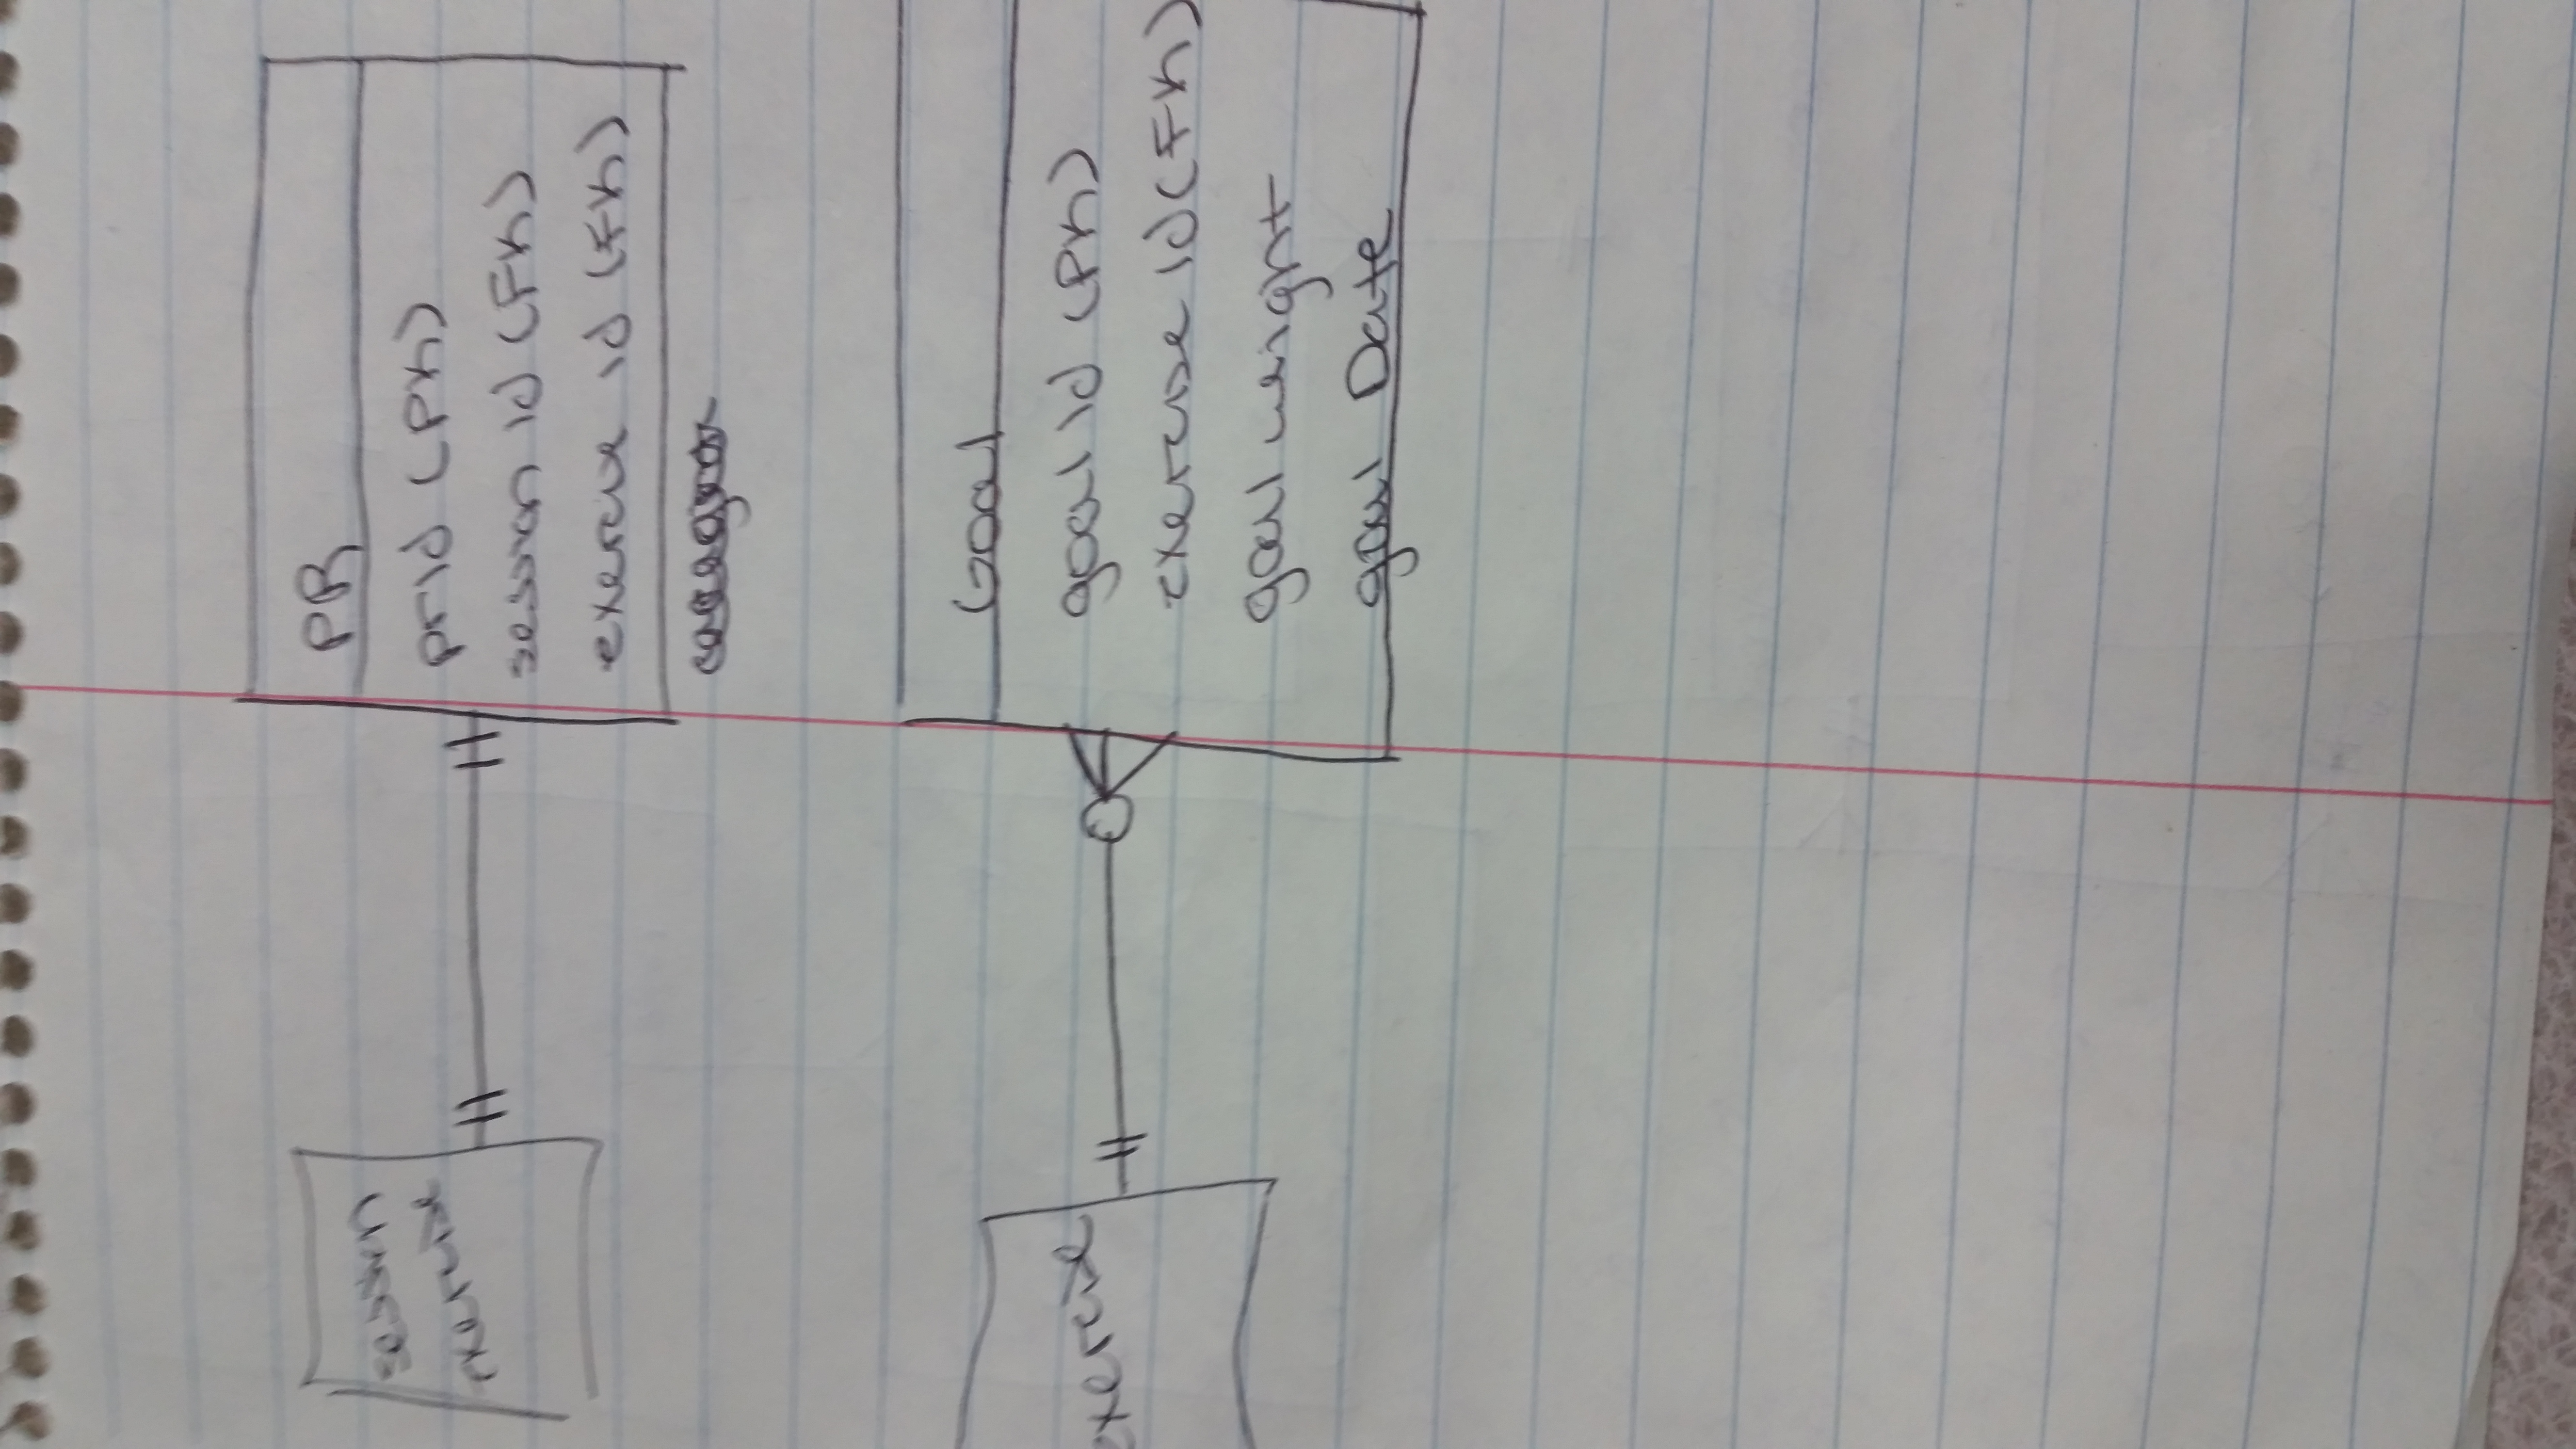 session
exercise
PR
prId (PK)
session id (FK)
exercise id (FK)
Goal
goal Id (PK)
exercise
exercise Id (FK)
goal weight
goal Date